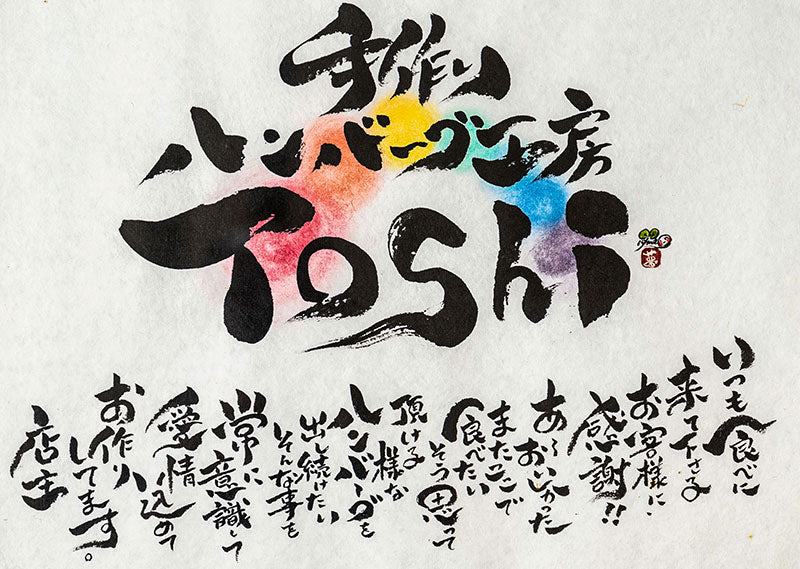 手作り
ハンバーグ工房
Toshi
いつも食べに
来て下さる
お客様に、
感謝!!
あ〜おいしかった
またここで
食べたい
そう思って
頂ける
様な
ハンバーグを
出し続けたい
そんな事を
常に
意識して
愛情込めて
お作り
してます。
店主